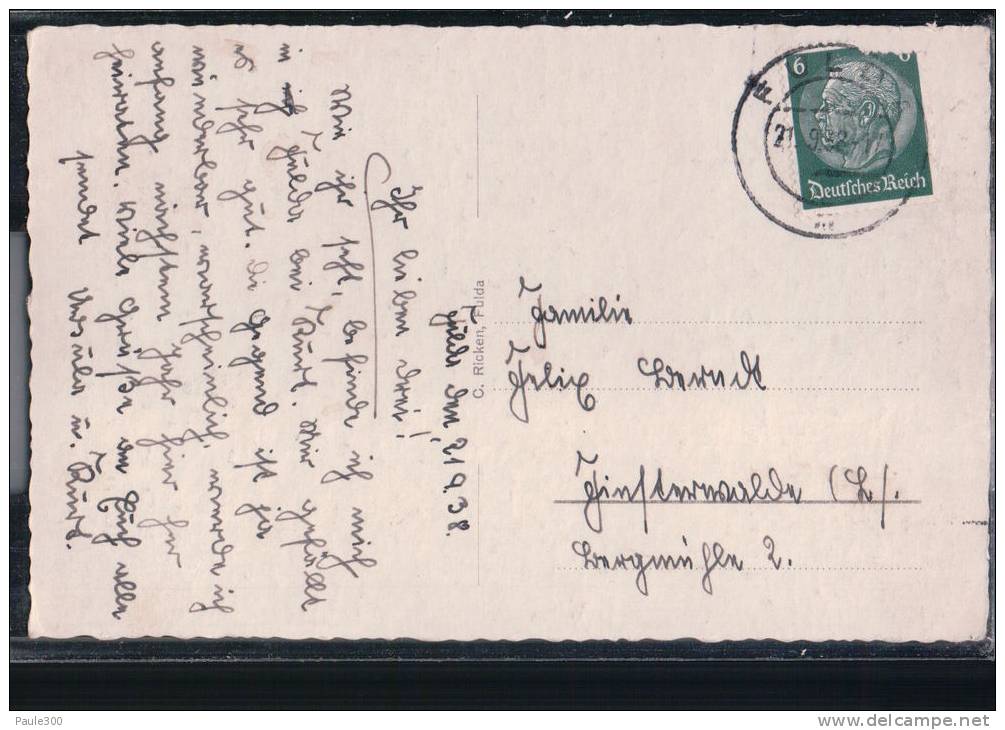 Fulda den, 21.9.38.
Ihr lieben drei!
Wie ihr seht, befinde ich mich
in Fulda bei Kurt. Mir gefällt
es sehr gut. die Gegend ist ja
wunderbar, warscheinlich werde ich
anfang nächsten Jahr hier her
heiraten. viele Grüße an Euch alle
sendet Ursula u. Kurt.
C. Ricken, Fulda
6
6
Deutsches Reich
Familie
Felix Berndt
Finsterwalde (L).
Bergmühle 2.
Paule300
www.delcampe.net